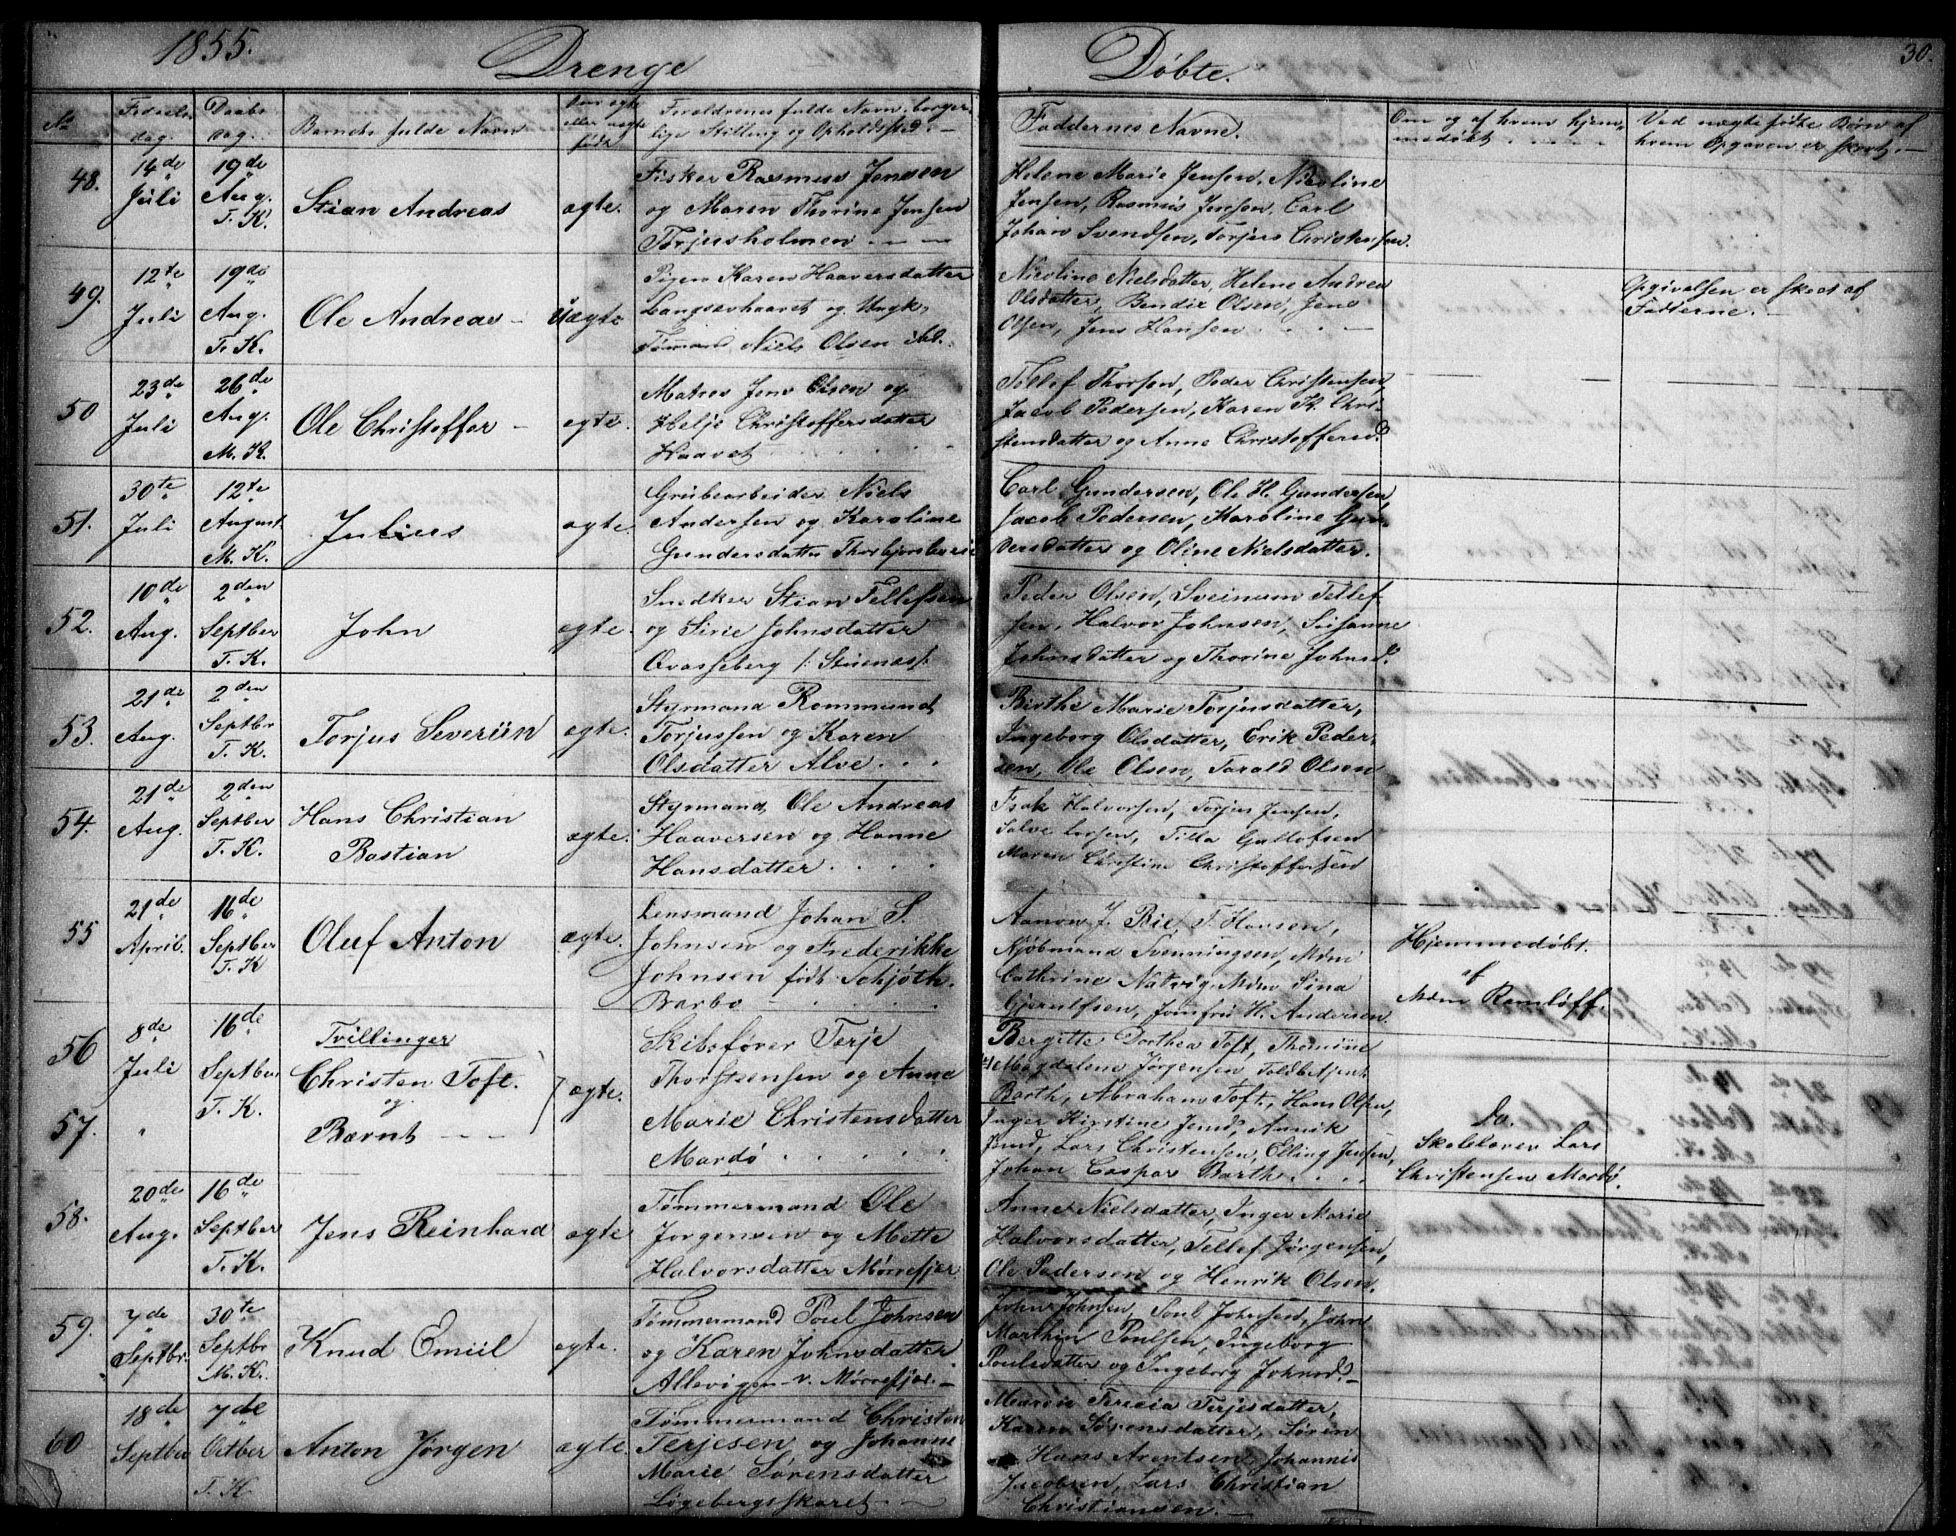 1855. Drenge Døbte. 30.
No
Fødsels
dag.
Daabs
dag.
Barnets fulde Navn
Om ægte
eller uægte
født
Forældrenes fulde Navn, borger-
lige Stilling og Opholdssted. —
Faddernes Navne.
Om og af hvem hjem-
medøbt
Ved uægte fødte Børn af
hvem Opgaven er skeet. —
48.
14de
Juli
19de
Aug.
T. K.
Stian Andreas
ægte.
Fisker Rasmus Jensen
og Maren Thorine Jensen
Torjusholmen
Helene Marie Jensen, Nicoline
Jensen, Rasmus Jensen, Carl
Johan Svendsen, Torjus Christensen
49.
12te
Juli
19de
Aug.
T. K.
Ole Andreas —
Uægte
Pigen Karen Haaversdatter
Langsævhaavet og Ungk.
Tømmerm. Niels Olsen ibd.
Nicoline Nielsdatter, Helene Andrea
Olsdatter, Bendix Olsen, Jens
Olsen, Jens Hansen
Opgivelsen er skeet af
Fadderne. —
50
23de
Juli
26de
Aug.
M. K.
Ole Christoffer —
ægte.
Matros Jens Olsen og
Helje Christoffersdatter
Haavet
Tellef Thorsen, Peder Christensen,
Jacob Pedersen, Karen K. Chri-
stensdatter og Anne Christoffersd.
51.
30te
Juli
12te
August
M. K.
Julius
ægte.
Grubearbeider Niels
Andersen og Karoline
Gundersdatter
Carl Gundersen, Ole H. Gundersen,
Jacob Pedersen, Karoline Gun-
dersdatter og Oline Nielsdatter.
52.
10de
Aug.
2den
Septber
T. K.
John
ægte.
Snedker Stian Tellefsen
og Sirie Johnsdatter
Peder Olsen, Sveinum Tellef-
sen, Halvor Johnsen, Susanne
Johnsdatter og Thorine Johnsd.
53.
21de
Aug.
2den
Septbr
T. K.
Torjus Severiin
ægte.
Styrmand Rommund
Torjussen og Karen
Olsdatter Alve
Birthe Marie Torjusdatter,
Ingeborg Olsdatter, Erik Peder-
sen, Ole Olsen, Tarald Olsen
54.
21de
Aug.
2den
Septber
T. K.
Hans Christian
Bastian
ægte.
Styrmand Ole Andreas
Haaversen og Hanne
Hansdatter
Isak Halvorsen, Torjus Jensen,
Salve
Maren Christine Christoffersen
55
21de
April.
16de
Septber
T. K
Oluf Anton
ægte.
Lensmand Johan S.
Johnsen og Frederikke
Johnsen født Schjøth.
Barbo
Aanon J. Bie, T. Hansen,
Kjøbmand Svenningsen, Mdm
Cathrine Natvig, Mdm Sina
Gjerulfsen, Jomfru H. Andersen.
Hjemmedøbt
af
Mdm Remløff.
56
57.
8de
Juli
"
16de
Septber
T. K.
Tvillinger
Christen Toft.
og
Bærnt
ægte.
Skibsfører Terje
Thorstensen og Anne
Marie Christensdatter
Mardø
Bergitte Dorthea Toft, Thomine
Magdalene Jørgensen Toldbetjent
Barth, Abraham Toft, Hans Olsen,
Inger Kirstine Jensd, Annik
Jensd, Lars Christensen, Elling Jensen,
Johan Caspar Barth.
Do.
Skolelærer Lars
Christensen Mardø.
58.
20de
Aug.
16de
Septber
T. K.
Jens Reinhard
ægte
Tømmermand Ole
Jørgensen og Mette
Halvorsdatter Mørrefjær
Anne Nielsdatter, Inger Marie
Halvorsdatter, Tellef Jørgensen,
Ole Pedersen og Henrik Olsen.
59.
7de
Septbr.
30te
Septbr
M. K.
Knud Emiil
ægte.
Tømmermand Poul Johnsen
og Karen Johnsdatter
Allevigen v. Mørrefjær. —
John Johnsen, Poul Johnsen, John
Marthin Poulsen, Ingeborg
Poulsdatter og Ingeborg Johnsd. —
60
18de
Septber
7de
Octber
T. K
Anton Jørgen
ægte.
Tømmermand Christen
Terjesen og Johanne
Marie Sørensdatter
Løgebergsskaret. —
Maren Tericia Terjesdatter,
Karen Sørensdatter, Søren
Hans Arentsen, Johannis
Jacobsen, Lars Christian
Christiansen. —